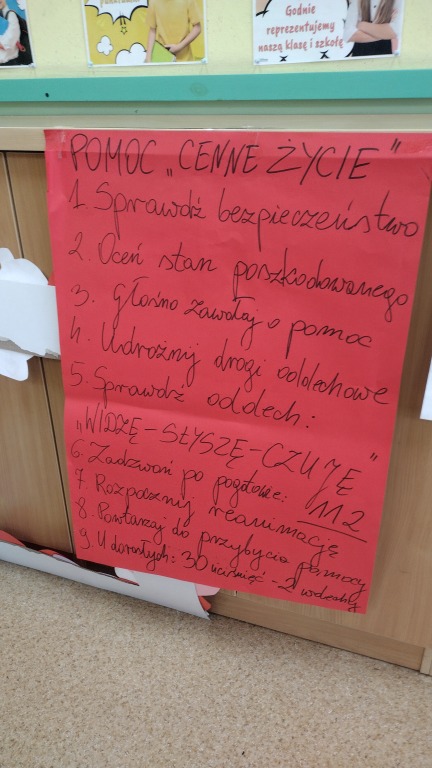 Godnie
reprezentujemy
naszą klasę i szkołę
POMOC „CENNE ŻYCIE"
1. Sprawdź bezpieczeństwo
2. Oceń stan poszkodowanego
3. Głośno zawołaj o pomoc
4. Udrożnij drogi oddechowe
5. Sprawdź oddech:
„WIDZĘ-SŁYSZĘ-CZUJĘ"
6. Zadzwoń po pogotowie: 112
7. Rozpocznij reanimację
8. Powtarzaj do przybycia pomocy
9. U dorosłych: 30 uciśnięć - 2 wdechy